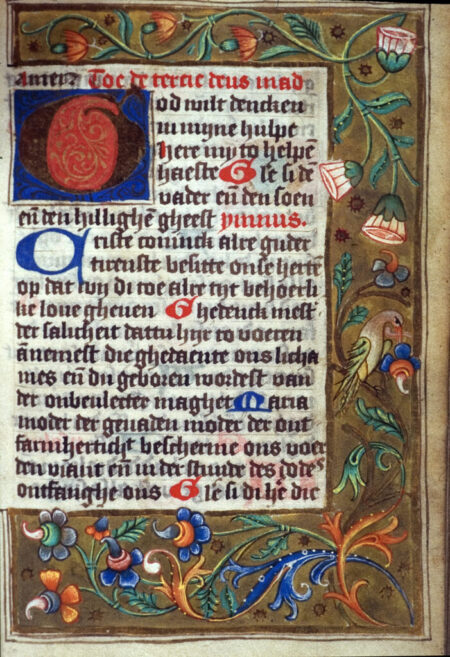 amen? Toe de tercie deus mad
God wilt dencken
in myne hulpe
here my to helpē
haeste G lie si dē
vader eñ den soen
eñ den hillighē gheest ymnus.
Criste coninck alre guder
tirenste besitte onse hertē
op dat wy di toe alre tyt behoerli
ke loue gheuen Ghedenck mest
der salicheit dattu hyr to voeren
ānemest die ghedaente ons licha
mes eñ du geboren wordest van
der onbeulecter maghet Maria
moder der genaden moder der ont
farmherticht bescherme ons voer
den viant eñ in der stunde des dodes
ontfanghe ons Glie si di hē die